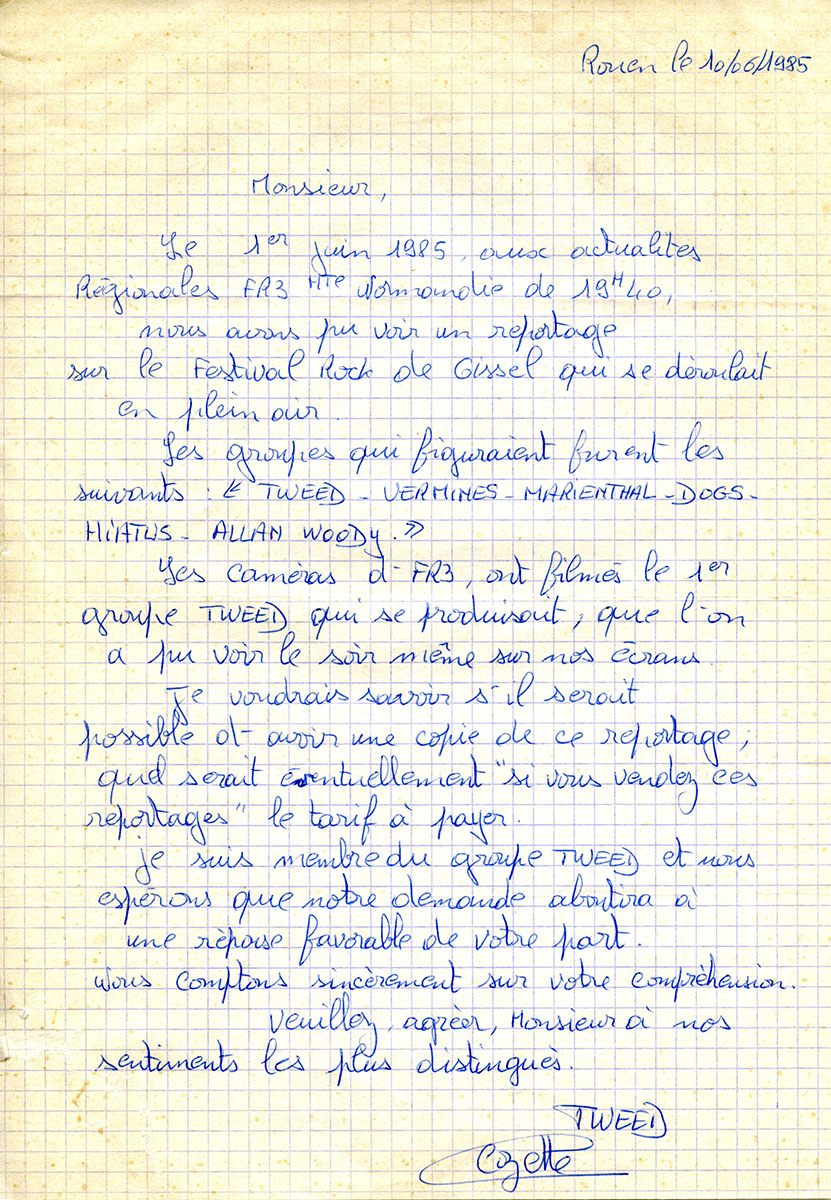 Rouen le 10/06/1985
Monsieur,
Le 1er juin 1985, aux actualités
Régionales FR3 Hte Normandie de 19H40,
nous avons pu voir un reportage
sur le Festival Rock de Gissel qui se déroulait
en plein air.
Les groupes qui figuraient furent les
suivants : « TWEED - VERMINES - MARIENTHAL - DOGS -
HIATUS - ALLAN WOODY. »
Les caméras d'FR3, ont filmés le 1er
groupe TWEED qui se produisait, que l'on
a pu voir le soir même sur nos écrans.
Je voudrais savoir s'il serait
possible d'avoir une copie de ce reportage,
quel serait éventuellement "si vous vendez ces
reportages" le tarif à payer.
je suis membre du groupe TWEED et nous
espérons que notre demande aboutira à
une réponse favorable de votre part.
Nous comptons sincèrement sur votre compréhension.
Veuillez, agréer, Monsieur à nos
sentiments les plus distingués.
TWEED
Cozette